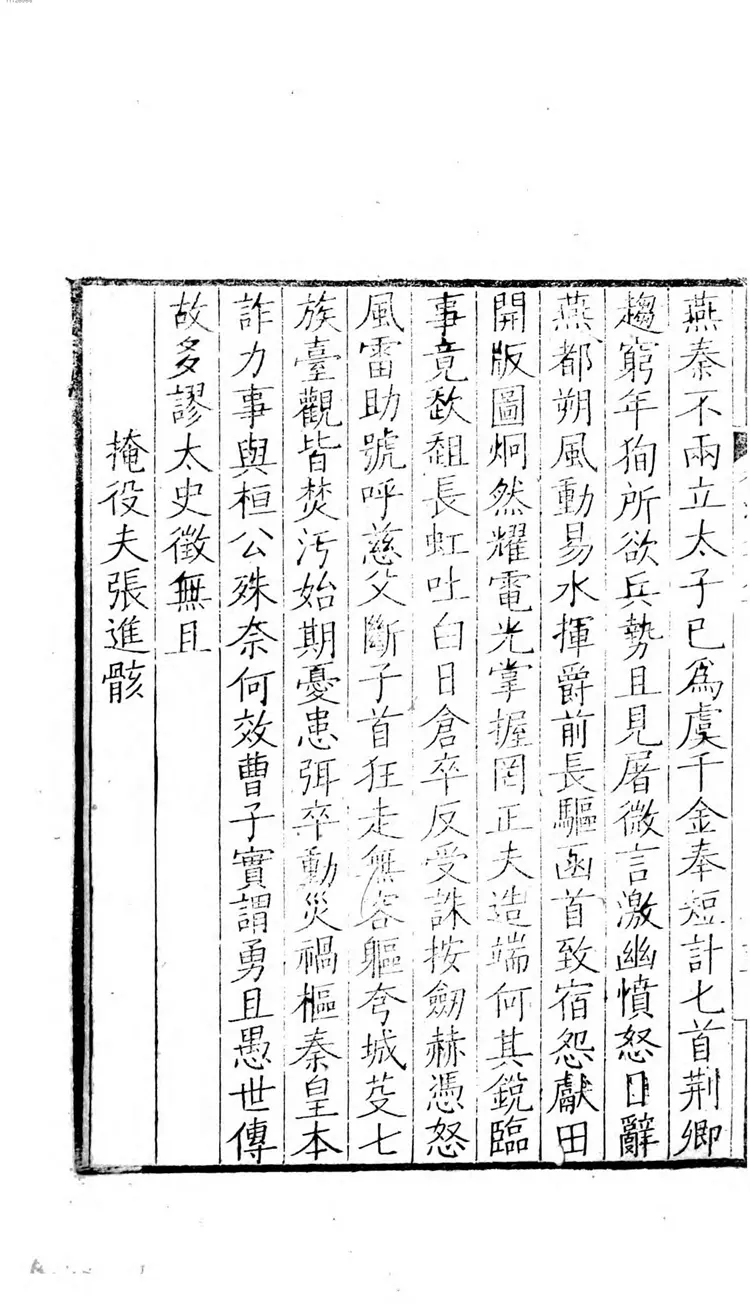 燕秦不兩立太子已爲虞千金奉短計七首荆卿
趨窮年狥所欲兵勢且見屠微言激幽憤怒目辭
燕都朔風動易水揮爵前長驅函首致宿怨獻田
開版圖炯然耀電光掌握罔正夫造端何其銳臨
事竟趑趄長虹吐白日倉卒反受誅按劒赫憑怒
風雷助號呼慈父斷子首狂走無容軀夸城芟七
族臺觀皆焚污始期憂患弭卒動災禍樞秦皇本
詐力事與桓公殊奈何效曹子實謂勇且愚世傳
故多謬太史徵無且
掩役夫張進骸